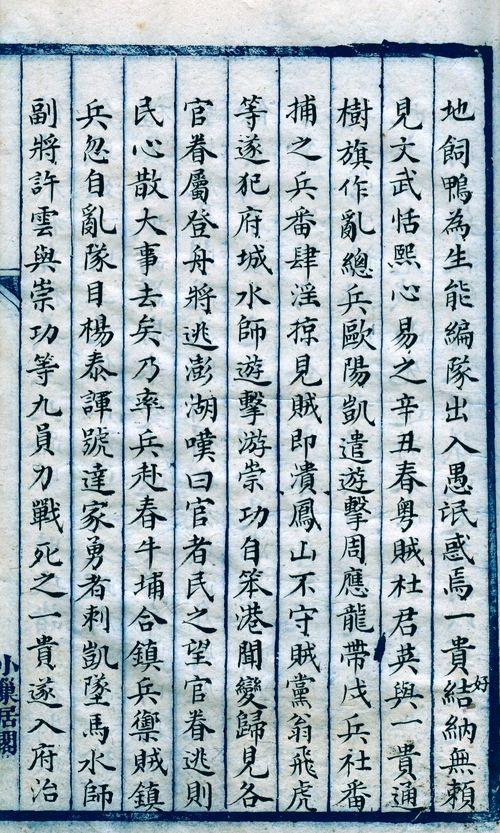 地飼鴨為生能編隊出入愚氓惑焉一貴結納無賴
好
見文武恬熙心易之辛丑春粵賊杜君英與一貴通
樹旗作亂總兵歐陽凱遣遊擊周應龍帶戍兵社番
捕之兵番肆淫掠見賊即潰鳳山不守賊黨翁飛虎
等遂犯府城水師遊擊游崇功自笨港聞變歸見各
官眷屬登舟將逃澎湖嘆曰官者民之望官眷逃則
民心散大事去矣乃率兵赴春牛埔合鎮兵禦賊鎮
兵忽自亂隊目楊泰諢號達家勇者刺凱墜馬水師
副將許雲與崇功等九員力戰死之一貴遂入府治
小巢居閣